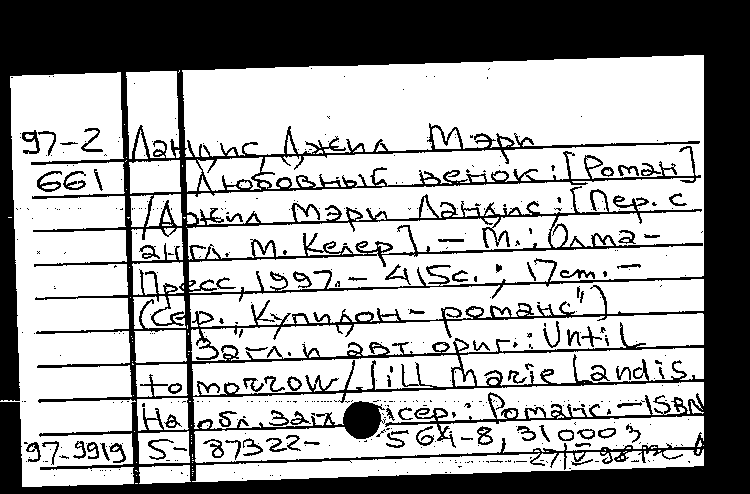 97-2 Ландис, Джил Мэри
661 Любовный венок: [Роман]
/Джил Мэри Ландис; [Пер. с
англ. М. Келер]. – М.: Олма-
Пресс, 1997. – 415с.; 17см. –
(Сер. „Купидон-романс")
Загл. и авт. ориг.: Until
tomorrow/Jill Marie Landis.
На обл. загл. сер.: Романс. – ISBN
97-9919 5-87322-564-8, 31000э
27/V-98